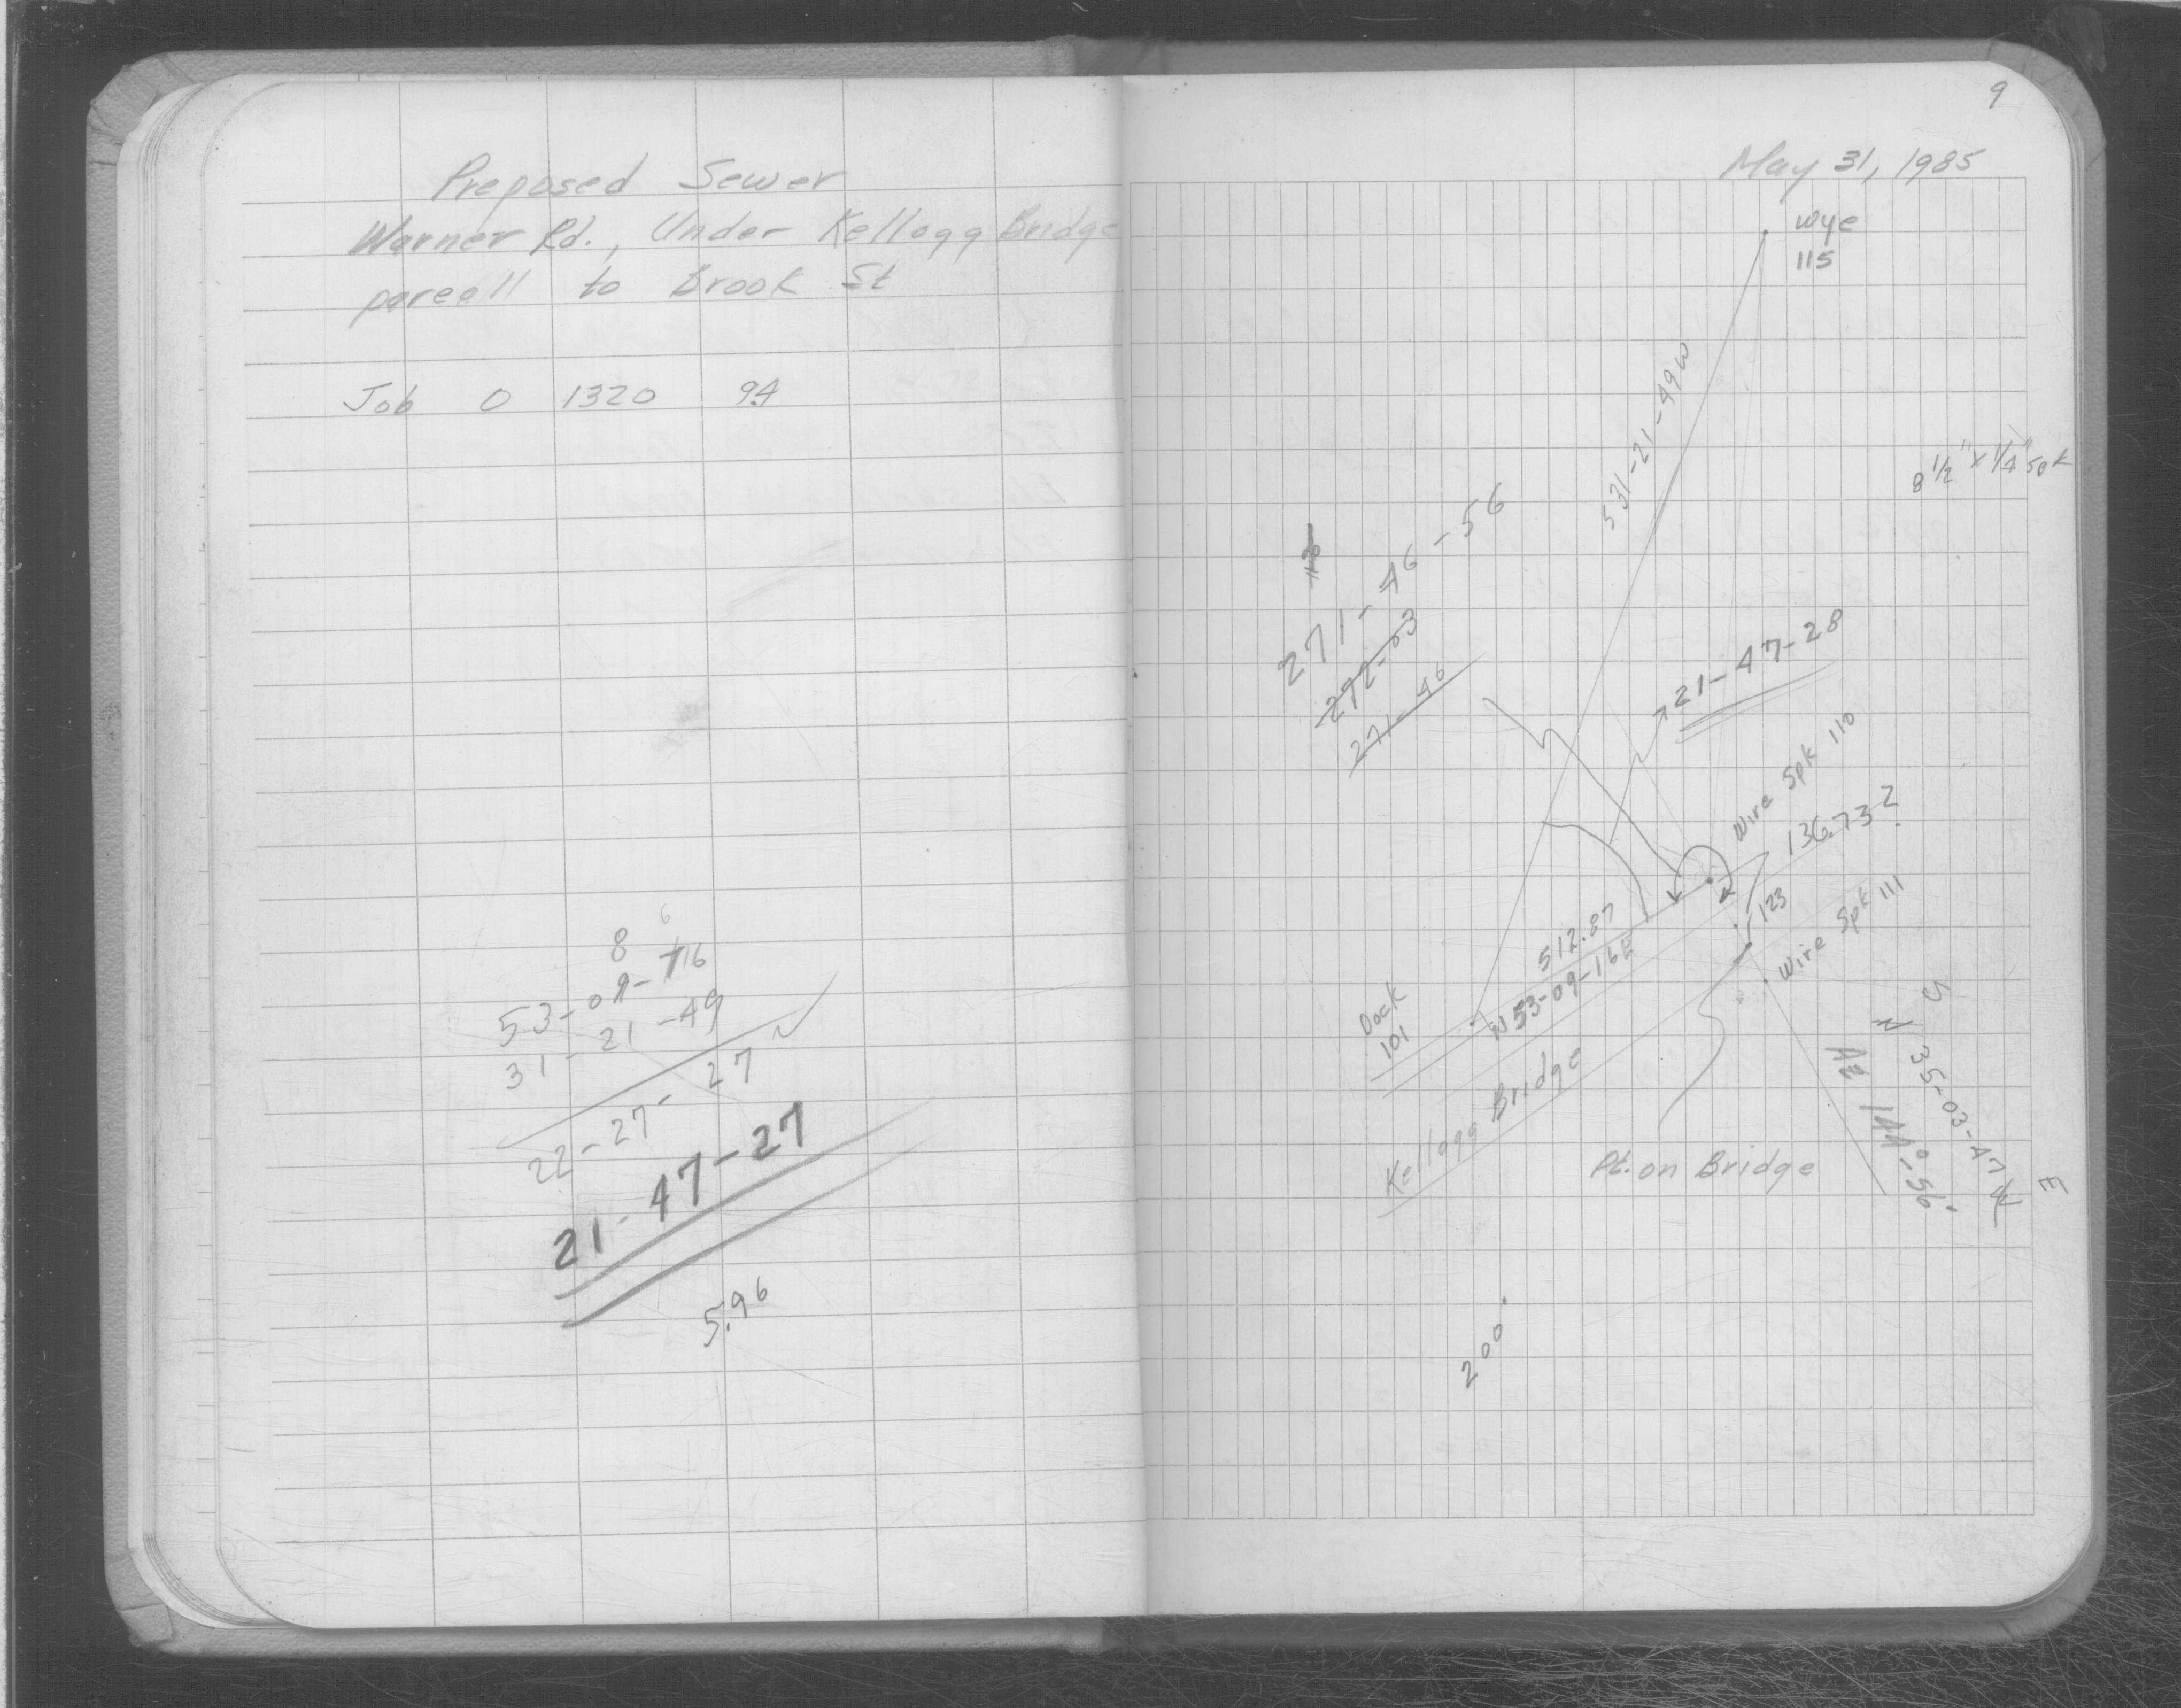 Preposed Sewer
Warner Rd., Under Kellogg Bridge
pareall to Brook St
Job 0 1320 94
8 6
53-09-16
31-21-49
22-27-27
21-47-27
5.96
9
May 31, 1985
Wye
115
S31-21-49W
8 1/2" x 1/4" Spk
271-46-56
272-03
271 46
21-47-28
Wire Spk 110
136.732
123
Wire Spk 111
512.87
N53-09-16E
Dock
101
Kellogg Bridge
Pt. on Bridge
N 35-03-47 W
S E
Az 144°-56'
200'